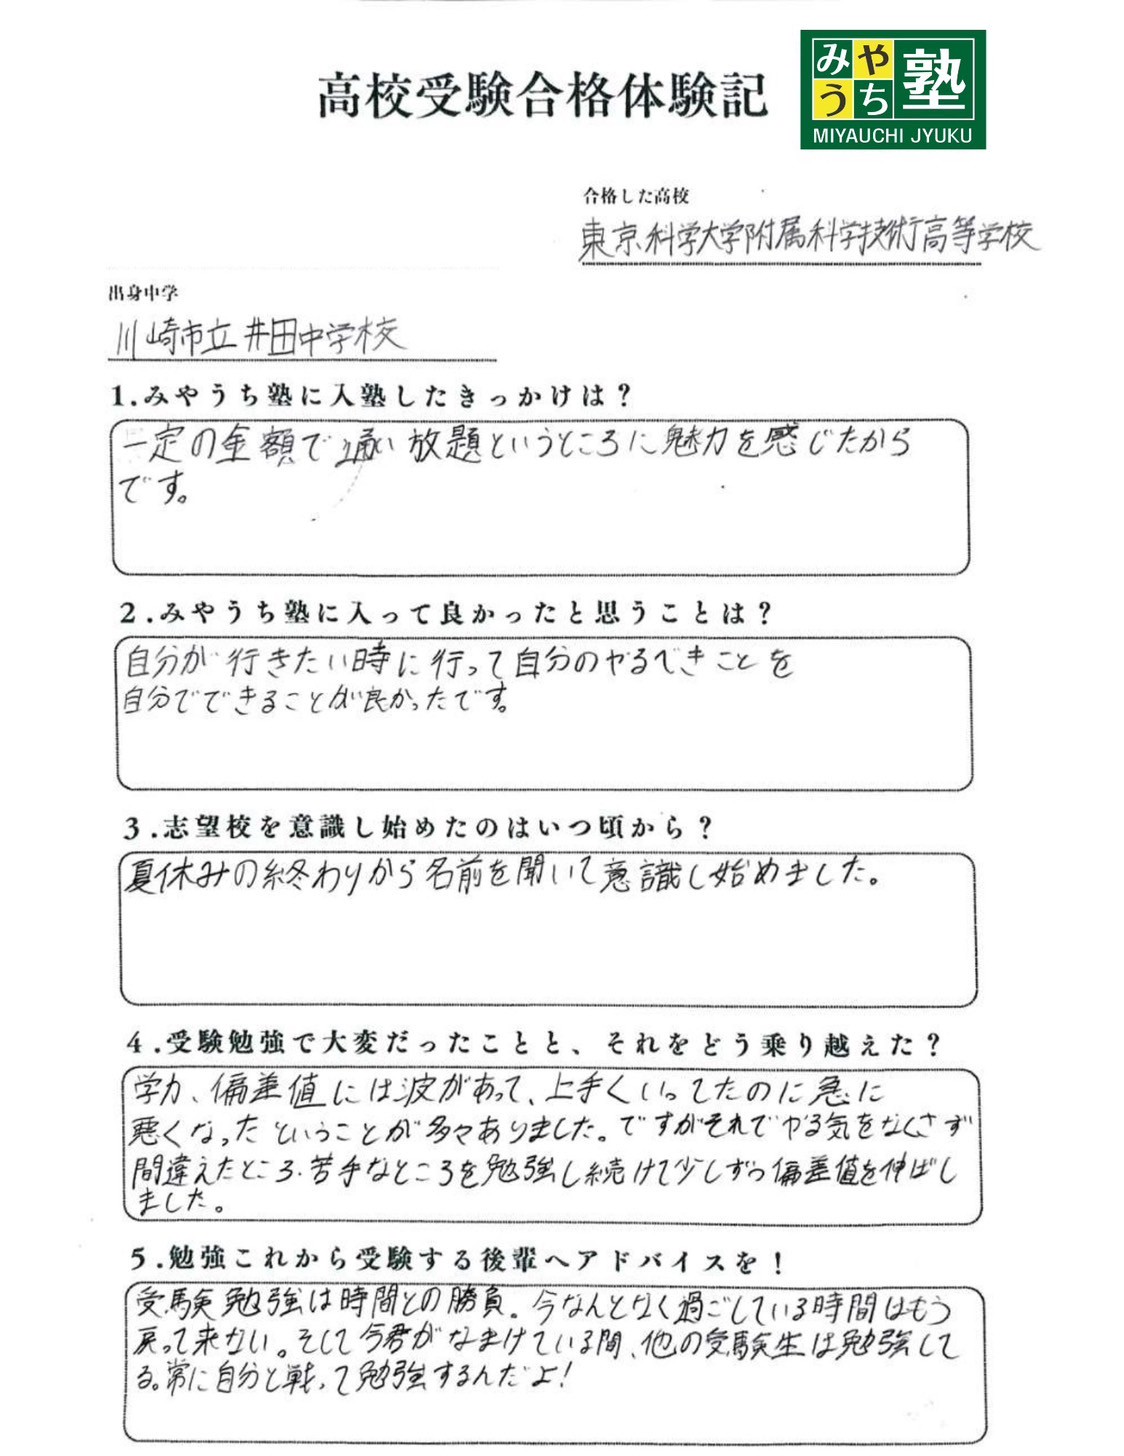 高校受験合格体験記
みやうち塾
MIYAUCHI JYUKU
合格した高校
東京科学大学附属科学技術高等学校
出身中学
川崎市立井田中学校
1.みやうち塾に入塾したきっかけは？
一定の金額で通い放題というところに魅力を感じたから
です。
2.みやうち塾に入って良かったと思うことは？
自分が行きたい時に行って自分のやるべきことを
自分でできることが良かったです。
3.志望校を意識し始めたのはいつ頃から？
夏休みの終わりから名前を聞いて意識し始めました。
4.受験勉強で大変だったことと、それをどう乗り越えた？
学力、偏差値には波があって、上手くいってたのに急に
悪くなったということが多々ありました。ですがそれでやる気をなくさず
間違えたところ・苦手なところを勉強し続けて少しずつ偏差値を伸ばし
ました。
5.勉強これから受験する後輩へアドバイスを！
受験勉強は時間との勝負。今なんとなく過ごしている時間はもう
戻って来ない。そして今君がなまけている間、他の受験生は勉強して
る。常に自分と戦って勉強するんだよ！